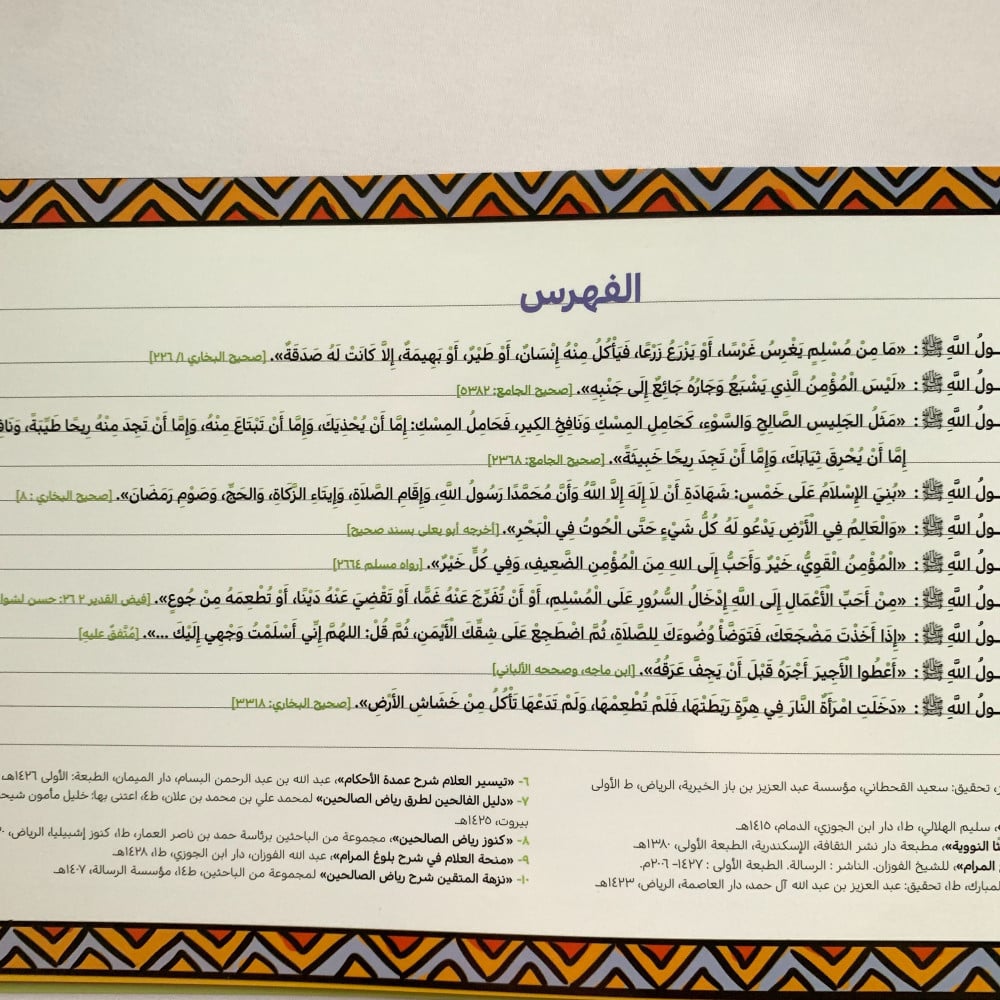 الفهرس
ـولُ اللَّهِ ﷺ : «مَا مِنْ مُسْلِمٍ يَغْرِسُ غَرْسًا، أَوْ يَزْرَعُ زَرْعًا، فَيَأْكُلُ مِنْهُ إِنْسَانٌ، أَوْ طَيْرٌ، أَوْ بَهِيمَةٌ، إِلَّا كَانَتْ لَهُ صَدَقَةٌ». [صحيح البخاري ١/ ٢٢٦]
ـولُ اللَّهِ ﷺ : «لَيْسَ الْمُؤْمِنُ الَّذِي يَشْبَعُ وَجَارُهُ جَائِعٌ إِلَى جَنْبِهِ». [صحيح الجامع: ٥٣٨٢]
ـولُ اللَّهِ ﷺ : «مَثَلُ الجَلِيسِ الصَّالِحِ وَالسَّوْءِ، كَحَامِلِ المِسْكِ وَنَافِخِ الكِيرِ، فَحَامِلُ المِسْكِ: إِمَّا أَنْ يُحْذِيَكَ، وَإِمَّا أَنْ تَبْتَاعَ مِنْهُ، وإِمَّا أَنْ تَجِدَ مِنْهُ رِيحًا طَيِّبَةً،
إِمَّا أَنْ يُحْرِقَ ثِيَابَكَ، وَإِمَّا أَنْ تَجِدَ رِيحًا خَبِيثَةً». [صحيح الجامع: ٢٣٦٨]
ـولُ اللَّهِ ﷺ : «بُنِيَ الإِسْلَامُ عَلَى خَمْسٍ: شَهَادَةِ أَنْ لَا إِلَهَ إِلَّا اللَّهُ وَأَنَّ مُحَمَّدًا رَسُولُ اللَّهِ، وَإِقَامِ الصَّلَاةِ، وَإِيتَاءِ الزَّكَاةِ، وَالحَجِّ، وَصَوْمِ رَمَضَانَ». [صحيح البخاري : ٨]
ـولُ اللَّهِ ﷺ : «وَالْعَالِمُ فِي الْأَرْضِ يَدْعُو لَهُ كُلُّ شَيْءٍ حَتَّى الْحُوتُ فِي الْبَحْرِ». [أخرجه أبو يعلى بسند صحيح]
ـولُ اللَّهِ ﷺ : «الْمُؤْمِنُ الْقَوِيُّ، خَيْرٌ وَأَحَبُّ إِلَى اللهِ مِنَ الْمُؤْمِنِ الضَّعِيفِ، وَفِي كُلٍّ خَيْرٌ». [رواه مسلم ٢٦٦٤]
ـولُ اللَّهِ ﷺ : «مِنْ أَحَبِّ الْأَعْمَالِ إِلَى اللَّهِ إِدْخَالُ السُّرُورِ عَلَى الْمُسْلِمِ، أَوْ أَنْ تُفَرِّجَ عَنْهُ غَمًّا، أَوْ تَقْضِيَ عَنْهُ دَيْنًا، أَوْ تُطْعِمَهُ مِنْ جُوعٍ». [فيض القدير ٢ ٢٦: حسن
ـولُ اللَّهِ ﷺ : «إِذَا أَخَذْتَ مَضْجَعَكَ، فَتَوَضَّأْ وُضُوءَكَ لِلصَّلَاةِ، ثُمَّ اضْطَجِعْ عَلَى شِقِّكَ الْأَيْمَنِ، ثُمَّ قُلْ: اللهُمَّ إِنِّي أَسْلَمْتُ وَجْهِي إِلَيْكَ ...». [مُتَّفقٌ عليهِ]
ـولُ اللَّهِ ﷺ : «أَعْطُوا الْأَجِيرَ أَجْرَهُ قَبْلَ أَنْ يَجِفَّ عَرَقُهُ». [ابن ماجه، وصححه الألباني]
ـولُ اللَّهِ ﷺ : «دَخَلَتِ امْرَأَةٌ النَّارَ فِي هِرَّةٍ رَبَطَتْهَا، فَلَمْ تُطْعِمْهَا، وَلَمْ تَدَعْهَا تَأْكُلُ مِنْ خَشَاشِ الأَرْضِ». [صحيح البخاري: ٣٣١٨]
تحقيق: سعيد القحطاني، مؤسسة عبد العزيز بن باز الخيرية، الرياض، ط الأولى
سليم الهلالي، ط١، دار ابن الجوزي، الدمام، ١٤١٥هـ
النووية»، مطبعة دار نشر الثقافة، الإسكندرية، الطبعة الأولى، ١٣٨٠هـ
المرام»، للشيخ الفوزان. الناشر : الرسالة. الطبعة الأولى : ١٤٢٧- ٢٠٠٦م.
المبارك، ط١، تحقيق: عبد العزيز بن عبد الله آل حمد، دار العاصمة، الرياض، ١٤٢٣هـ
٦- «تيسير العلام شرح عمدة الأحكام»، عبد الله بن عبد الرحمن البسام، دار الميمان، الطبعة: الأولى ١٤٢٦هـ
٧- «دليل الفالحين لطرق رياض الصالحين» لمحمد علي بن محمد بن علان، ط٤، اعتنى بها: خليل مأمون شيحا
بيروت، ١٤٢٥هـ
٨- «كنوز رياض الصالحين»، مجموعة من الباحثين برئاسة حمد بن ناصر العمار، ط١، كنوز إشبيليا، الرياض،
٩- «منحة العلام في شرح بلوغ المرام»، عبد الله الفوزان، دار ابن الجوزي، ط١، ١٤٢٨هـ
١٠- «نزهة المتقين شرح رياض الصالحين» لمجموعة من الباحثين، ط١٤، مؤسسة الرسالة، ١٤٠٧هـ